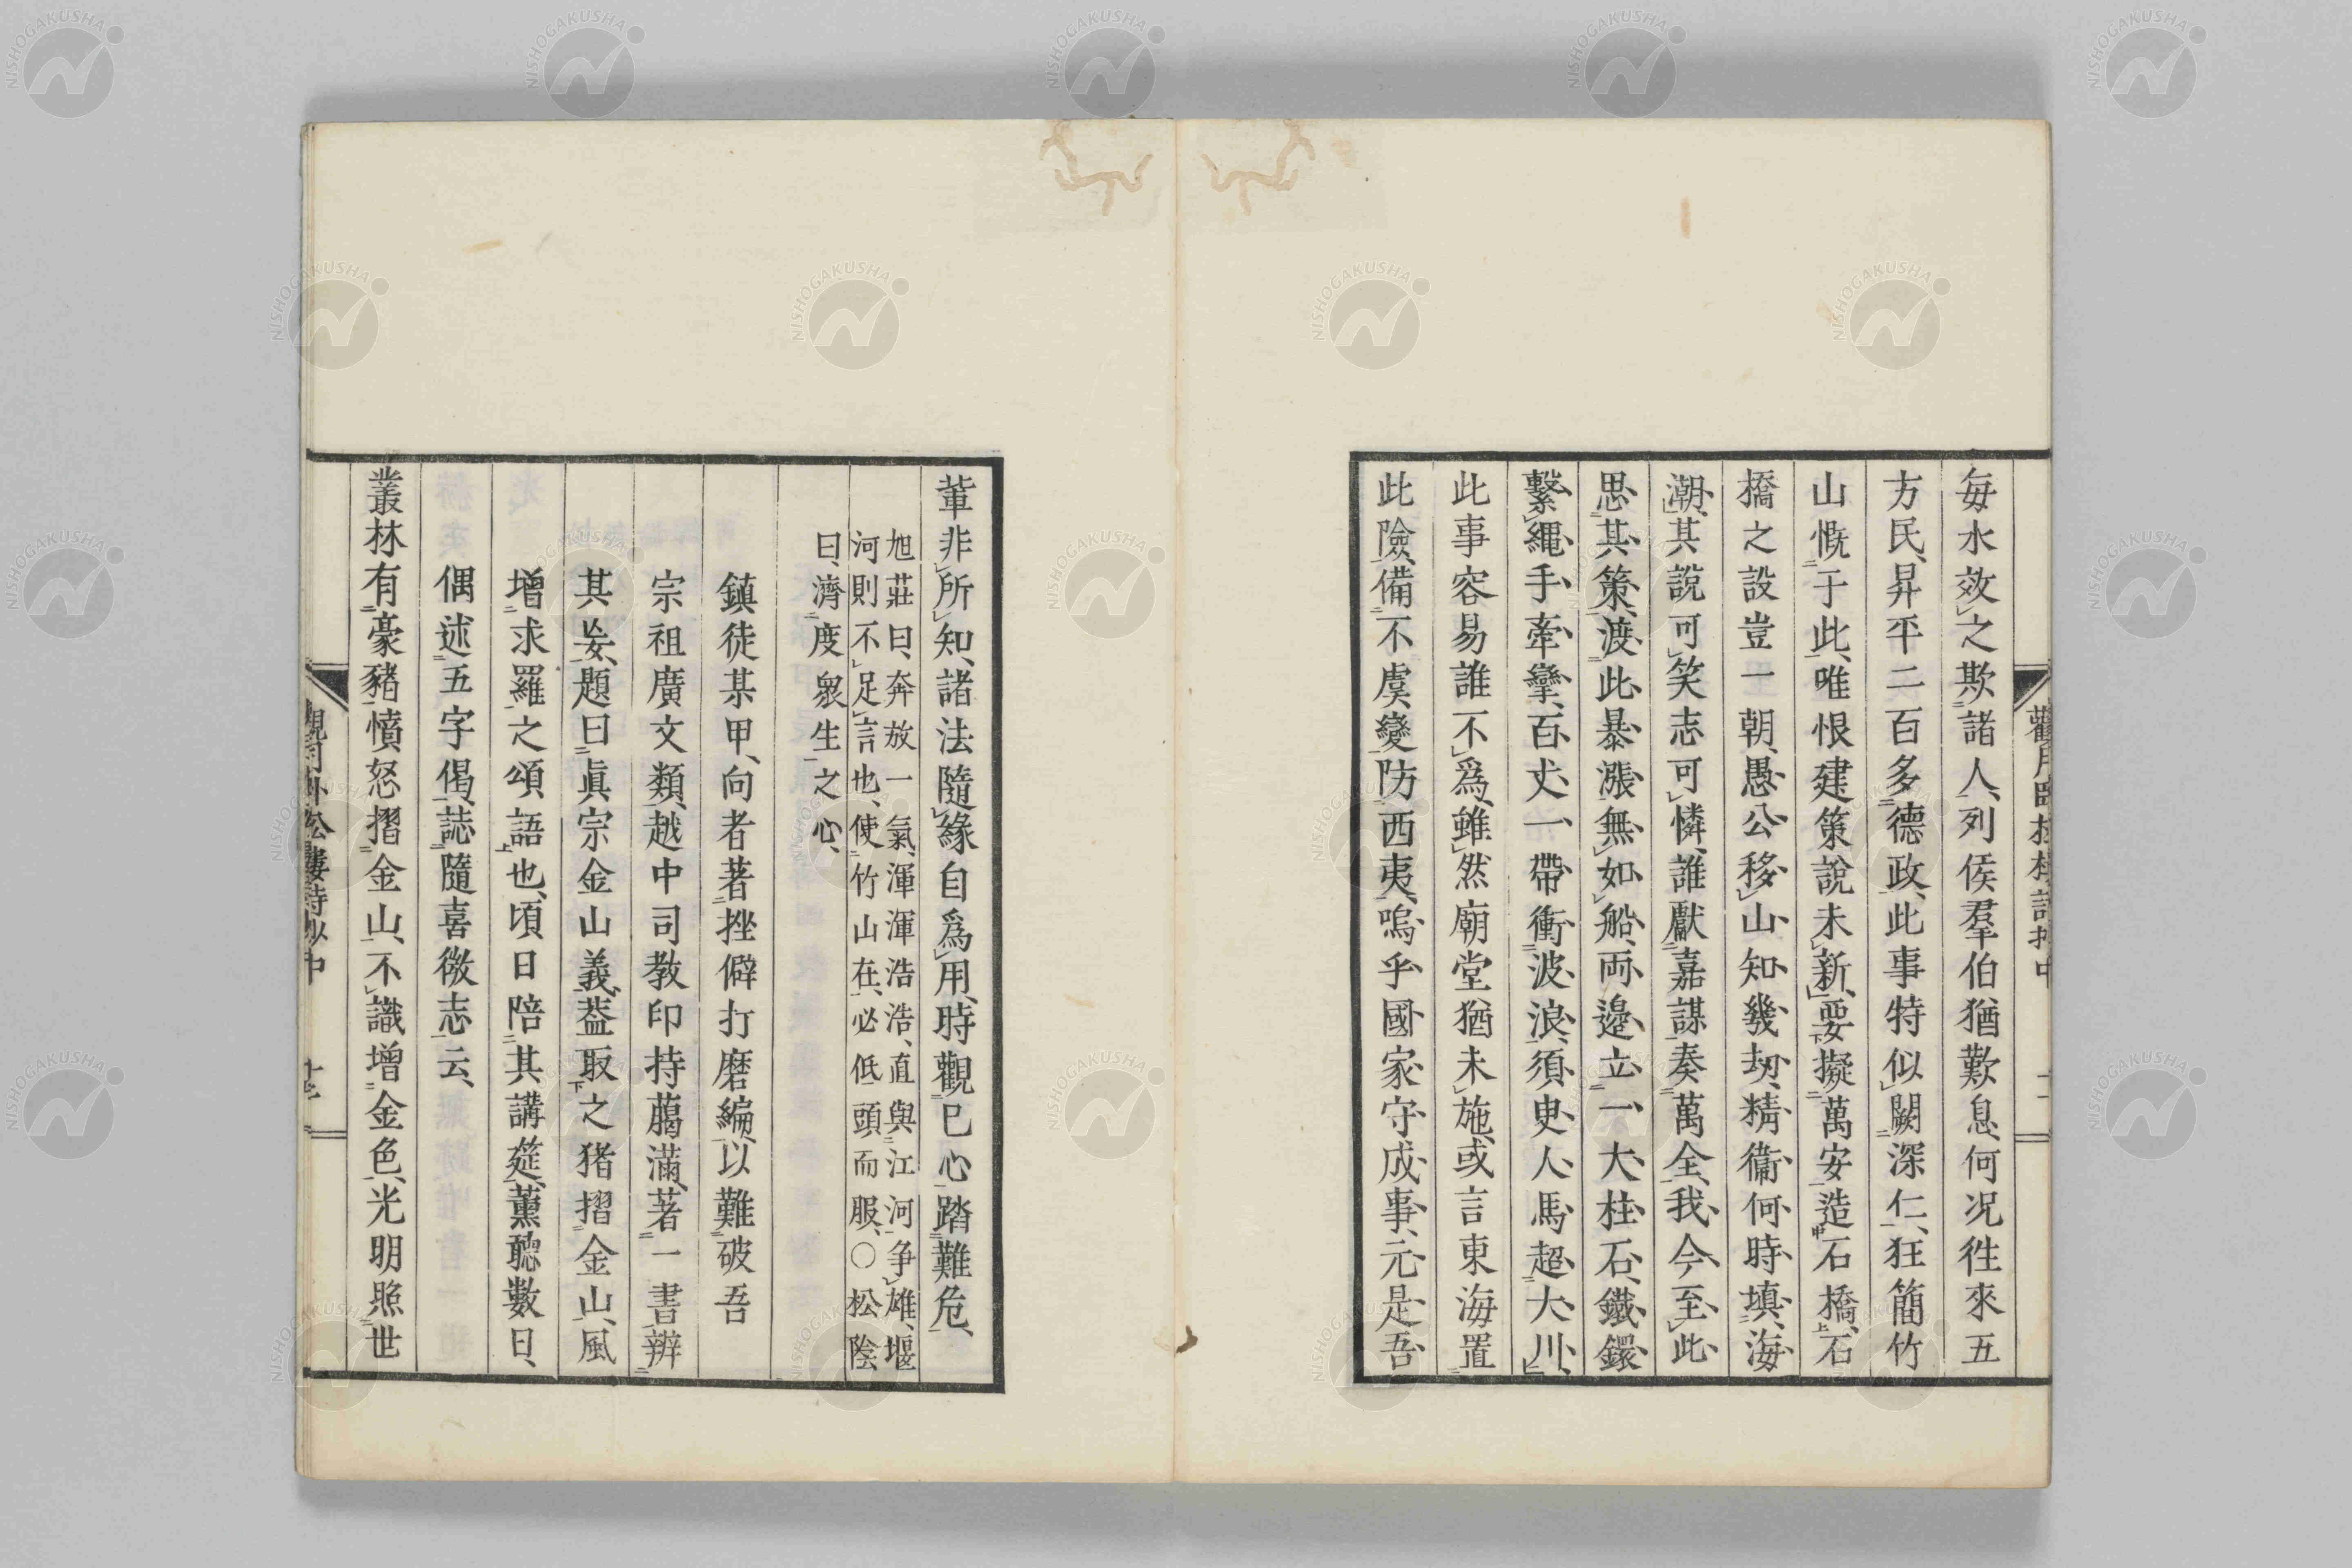 毎水效之欺諸人、列侯羣伯猶歎息、何況徃來五
方民、昇平二百多德政、此事特似闕深仁、狂簡竹
山慨于此、唯恨建策說未新、要擬萬安造石橋、石
橋之設豈一朝、愚公移山知幾劫、精衞何時塡海
潮、其說可笑志可憐、誰獻嘉謀奏萬全、我今至此
思其策、渡此暴漲無如船、両邊立一大柱石、鐵鐶
繫繩手牽攣、百丈一帶衝波浪、須臾人馬超大川、
此事容易誰不爲、雖然廟堂猶未施、或言東海置
此險、備不虞變防西夷、嗚乎國家守成事、元是吾
軰非所知、諸法隨緣自爲用、時觀巳心踏難危、
旭莊曰、奔放一氣、渾渾浩浩、直與江河爭雄、堰
河則不足言也、使竹山在、必低頭而服、〇松陰
曰、濟度衆生之心、
鎮徒某甲、向者著挫僻打磨編、以難破吾
宗祖廣文類、越中司教印持藹滿、著一書辨
其妄、題曰眞宗金山義、葢取之猪摺金山、風
增求羅之頌語也、頃日陪其講莚、薰聽數日、
偶述五字偈、誌隨喜微志云、
叢林有豪豬、憤怒摺金山、不識增金色、光明照世